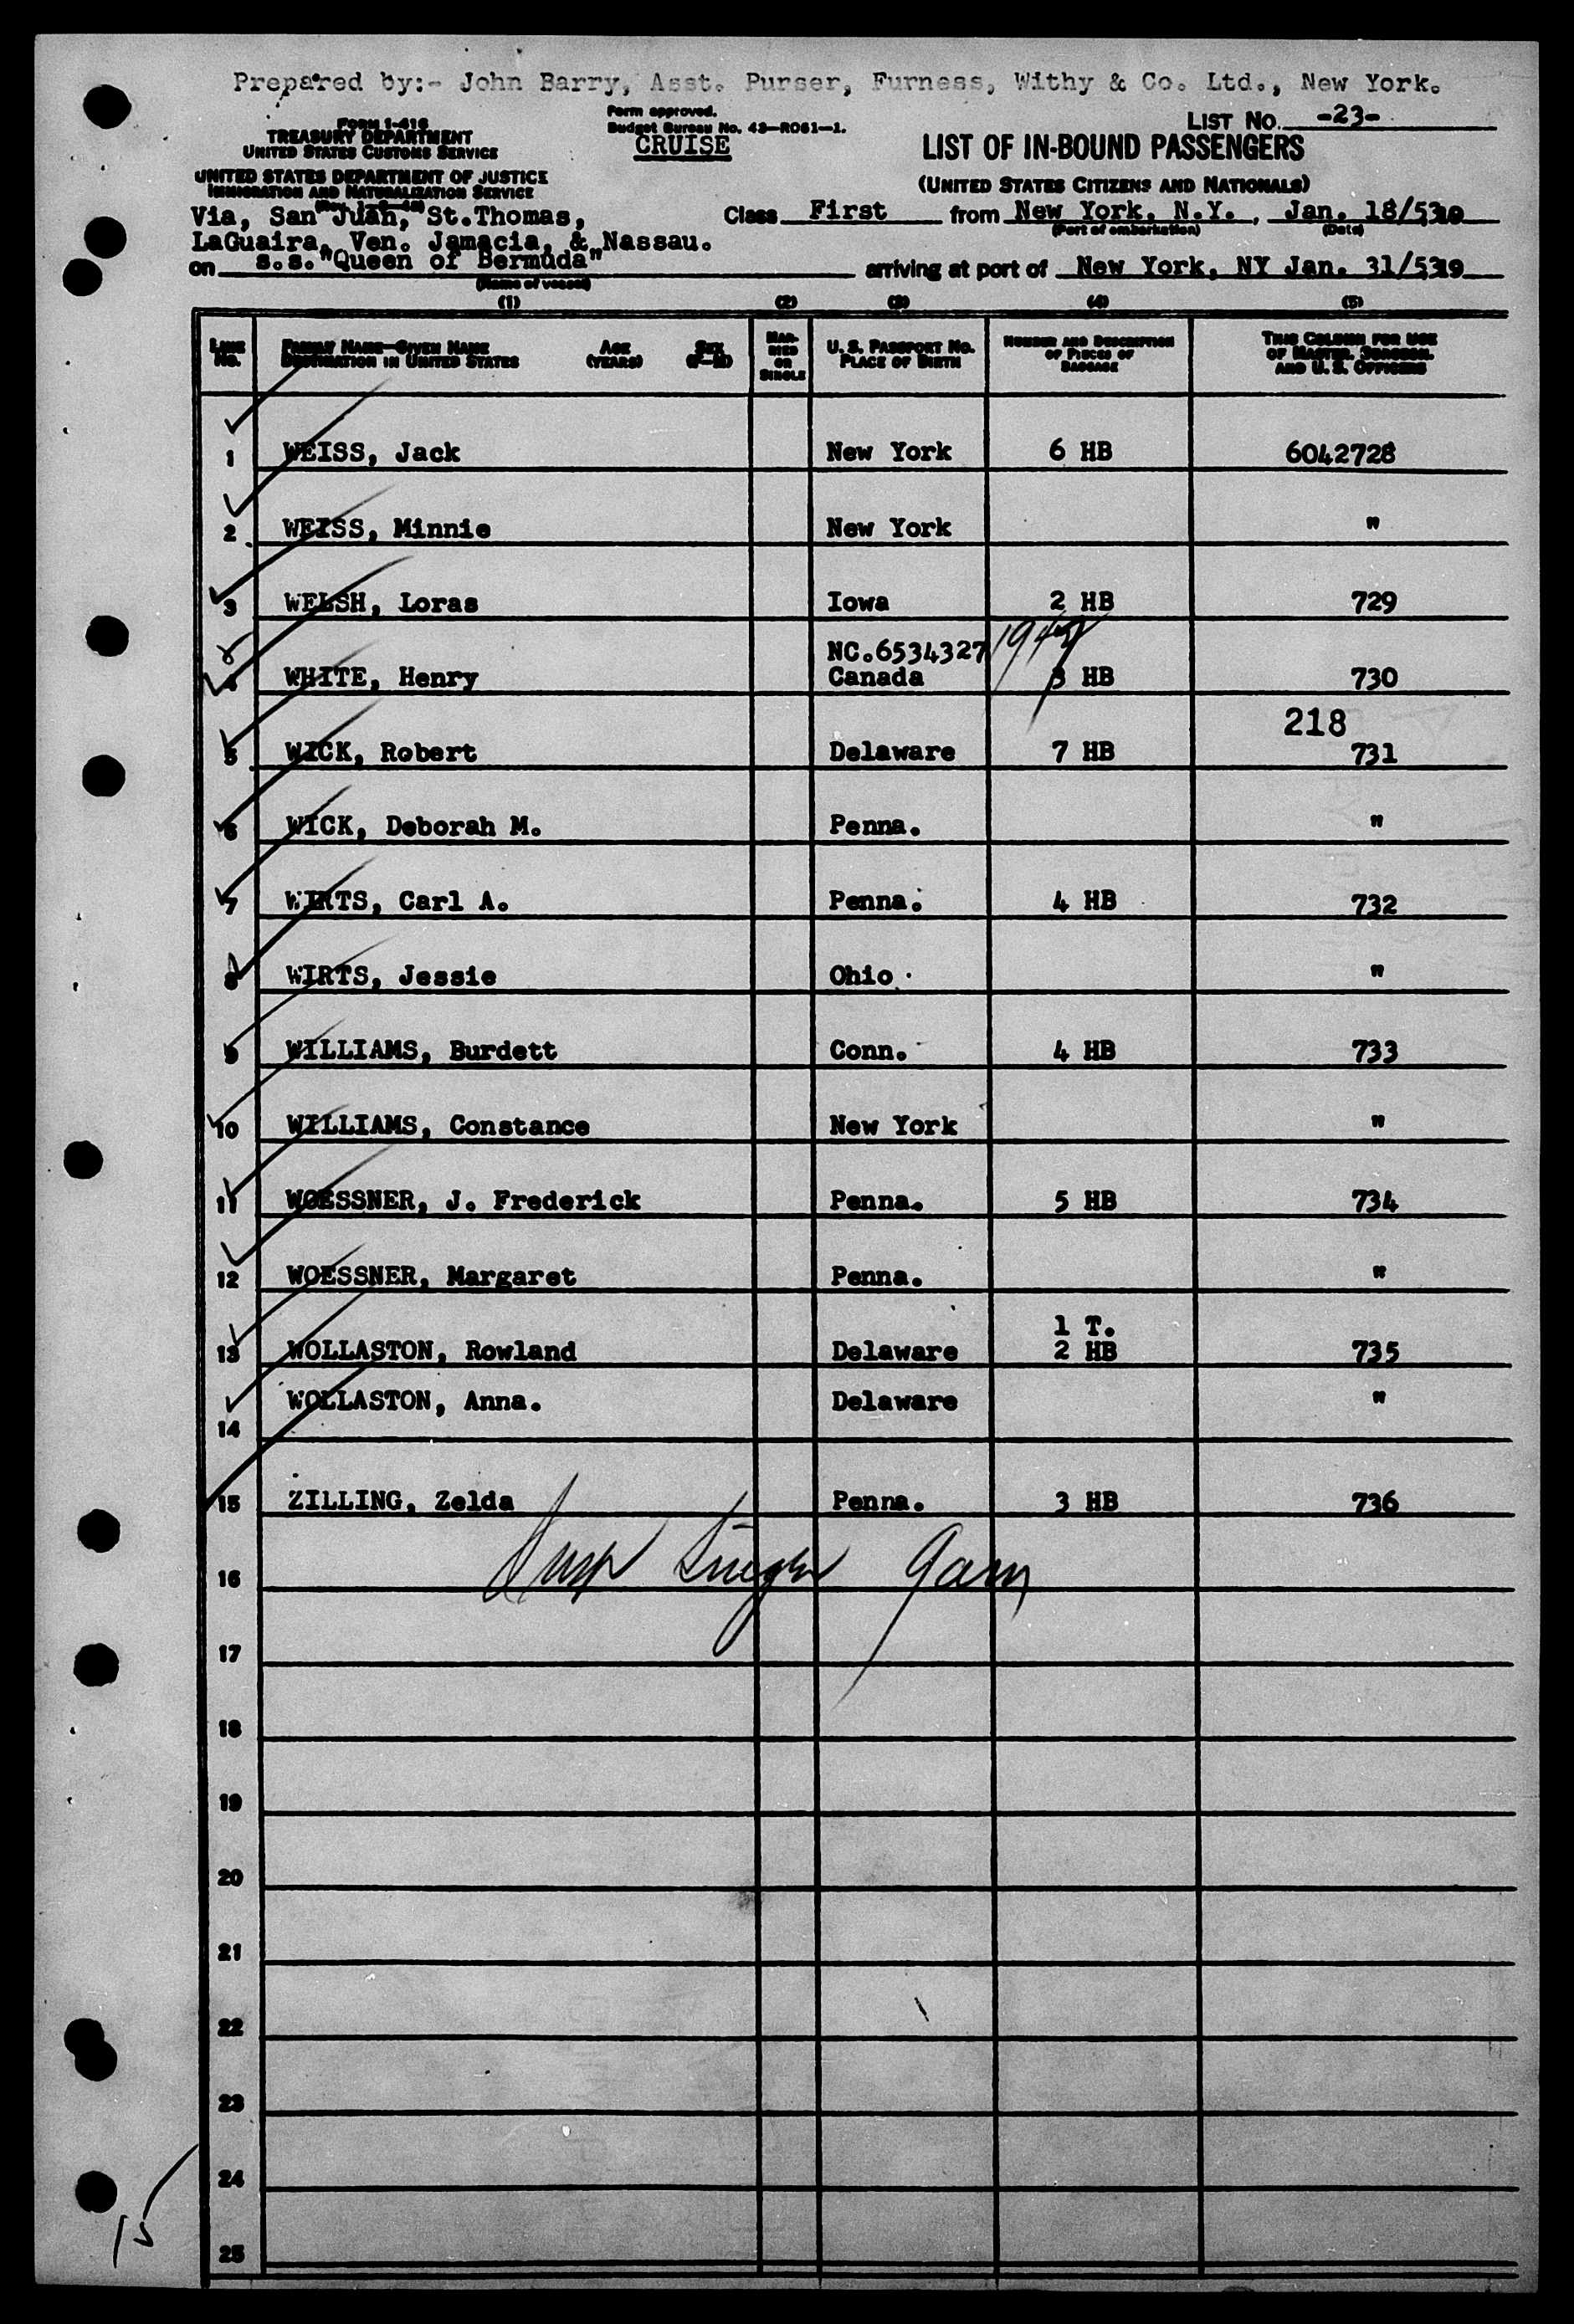 Prepared by:- John Barry, Asst. Purser, Furness, Withy & Co. Ltd., New York.
Form approved.
Budget Bureau No. 43-R061-1.
LIST NO. -23-
FORM I-416
TREASURY DEPARTMENT
UNITED STATES CUSTOMS SERVICE
CRUISE
LIST OF IN-BOUND PASSENGERS
UNITED STATES DEPARTMENT OF JUSTICE
IMMIGRATION AND NATURALIZATION SERVICE
(UNITED STATES CITIZENS AND NATIONALS)
Via, San Juan, St.Thomas,
Class First from New York, N.Y., Jan. 18/53
(Port of embarkation) (Date)
LaGuaira, Ven. Jamacia, & Nassau.
on s.s."Queen of Bermuda" arriving at port of New York, NY Jan. 31/53
(Name of vessel)
(1) (2) (3) (4) (5)
LINE NO.
FAMILY NAME—GIVEN NAME
DESTINATION IN UNITED STATES
AGE (YEARS)
SEX (F-M)
MARRIED OR SINGLE
U. S. PASSPORT NO.
PLACE OF BIRTH
NUMBER AND DESCRIPTION OF PIECES OF BAGGAGE
THIS COLUMN FOR USE OF MASTER, SURGEON, AND U. S. OFFICERS
1 WEISS, Jack New York 6 HB 6042728
2 WEISS, Minnie New York "
3 WELSH, Loras Iowa 2 HB 729
NC.6534327
4 WHITE, Henry Canada 3 HB 730
218
5 WICK, Robert Delaware 7 HB 731
6 WICK, Deborah M. Penna. "
7 WIRTS, Carl A. Penna. 4 HB 732
8 WIRTS, Jessie Ohio "
9 WILLIAMS, Burdett Conn. 4 HB 733
10 WILLIAMS, Constance New York "
11 WOESSNER, J. Frederick Penna. 5 HB 734
12 WOESSNER, Margaret Penna. "
1 T.
13 WOLLASTON, Rowland Delaware 2 HB 735
14 WOLLASTON, Anna. Delaware "
15 ZILLING, Zelda Penna. 3 HB 736
16
17
18
19
20
21
22
23
24
15
25